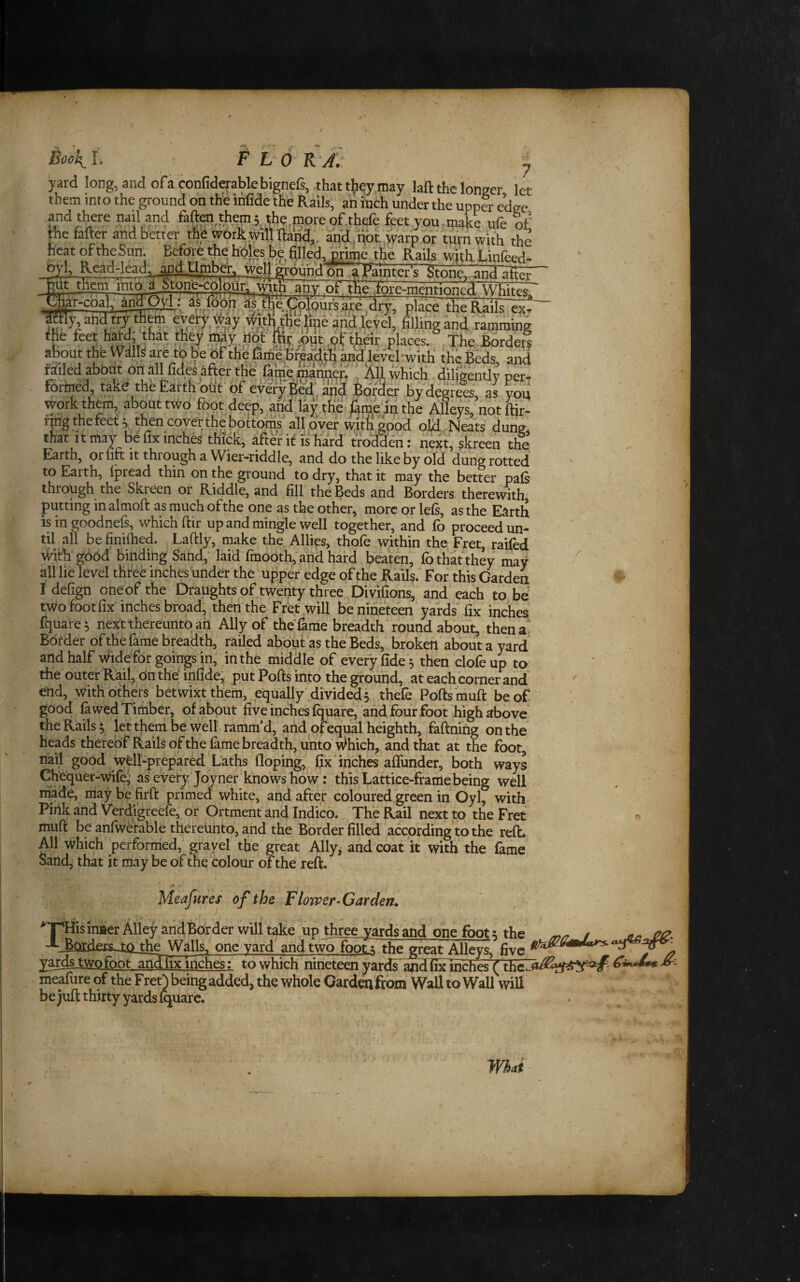 Book I. FLORA. 7
yard long, and of a conſiderable bigneſs, that they may laſt the longer, let
them into the ground on the inſide the Rails, an inch under the upper edge,
and there nail and faſten them; the more of theſe feet you make uſe of,
the faſter and better the work will ſtand, and not warp or turn with the
heat of the Sun. Before the holes be filled, prime the Rails with Linſeed-
oyl, Read-lead, and Umber, well ground on a Painter's Stone, and after
put them into a Stone-colour, with any of the fore-mentioned Whites,
Char-coal, and Oyl: as ſoon as the Colours are dry, place the Rails ex-
actly, and try them every way with the line and level, filling and ramming
the feet hard, that they may not ſtir out of their places. The Borders
about the Walls are to be of the ſame breadth and level with the Beds, and
railed about on all ſides after the ſame manner. All which diligently per-
formed, take the Earth out of every Bed and Border by degrees, as you
work them, about two foot deep, and lay the ſame in the Alleys, not ſtir-
ring the feet; then cover the bottoms all over with good old Neats dung,
that it may be ſix inches thick, after it is hard trodden: next, skreen the
Earth, or ſift it through a Wier-riddle, and do the like by old dung rotted
to Earth, ſpread thin on the ground to dry, that it may the better paſs
through the Skreen or Riddle, and fill the Beds and Borders therewith,
putting in almoſt as much of the one as the other, more or leſs, as the Earth
is in goodneſs, which ſtir up and mingle well together, and ſo proceed un-
til all be finiſhed. Laſtly, make the Allies, thoſe within the Fret, raiſed
with good binding Sand, laid ſmooth, and hard beaten, ſo that they may
all lie level three inches under the upper edge of the Rails. For this Garden
I deſign one of the Draughts of twenty three Diviſions, and each to be
two foot ſix inches broad, then the Fret will be nineteen yards ſix inches
ſquare; next thereunto an Ally of the ſame breadth round about, then a
Border of the ſame breadth, railed about as the Beds, broken about a yard
and half wide for goings in, in the middle of every ſide; then cloſe up to
the outer Rail, on the inſide, put Poſts into the ground, at each corner and
end, with others betwixt them, equally divided; theſe Poſts muſt be of
good ſawed Timber, of about five inches ſquare, and four foot high above
the Rails; let them be well ramm'd, and of equal heighth, faſtning on the
heads thereof Rails of the ſame breadth, unto which, and that at the foot,
nail good well-prepared Laths ſloping, ſix inches aſſunder, both ways
Chequer-wiſe, as every Joyner knows how: this Lattice-frame being well
made, may be firſt primed white, and after coloured green in Oyl, with
Pink and Verdigreeſe, or Ortment and Indico. The Rail next to the Fret
muſt be anſwerable thereunto, and the Border filled according to the reſt.
All which performed, gravel the great Ally, and coat it with the ſame
Sand, that it may be of the colour of the reſt.
Meaſures of the Flower-Garden.
THis inner Alley and Border will take up three yards and one foot; the
Borders to the Walls, one yard and two foot; the great Alleys, five
yards two foot and ſix inches: to which nineteen yards and ſix inches (the
meaſure of the Fret) being added, the whole Garden from Wall to Wall will
be juſt thirty yards ſquare.
What